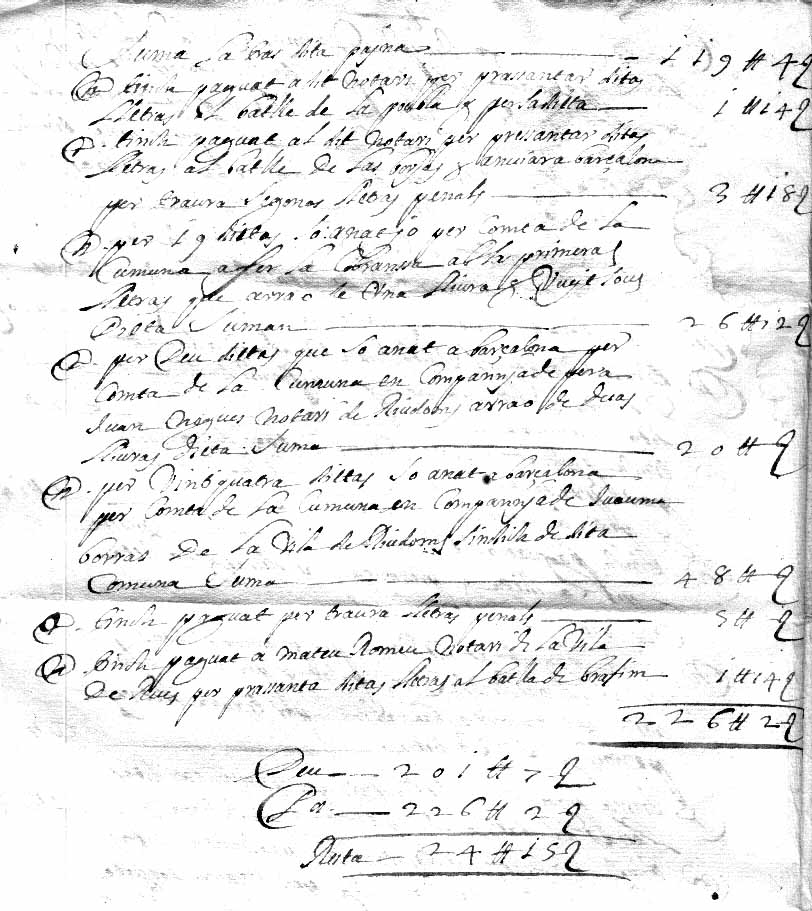 Suma la tras dita pajna — 119 ll 4 s
P. tinch paguat a dit Notari per prasantar ditas
lletras al batlle de la pobla y per sa dieta — 1 ll 14 s
P. tinch paguat al dit Notari per presantar ditas
lletras al batlle de las borjas y anviar a barçalona
per traura segonas lletras penals — 3 ll 18 s
P. per 19 dittas so anat jo per Comta de la
Cumuna a fer la Cobransa ab la primeras
lletras que a rrao de Una lliura y Vuyt sous
Dieta suman — 26 ll 12 s
P. per Deu dittas que so anat a barçalona per
Comta de la Cumuna en Companyja de
Juan Nogues Notari de Riudoms a rrao de duas
lliuras dieta suma — 20 ll s
P. per Vint y quatra dittas so anat a barçalona
per Comta de la Cumuna en Companyja de Jauume
borras de la Vila de Riudoms sindich de dita
Comuna suma — 48 ll s
P. tinch paguat per traura lletras penals — 5 ll s
P. tinch paguat a mateu Romeu Notari de la Vila
de Reus per prasanta ditas lletras al batlla de brafim — 1 ll 14 s
226 ll 2 s
Deu — 201 ll 7 s
Pa. — 226 ll 2 s
Resta — 24 ll 15 s